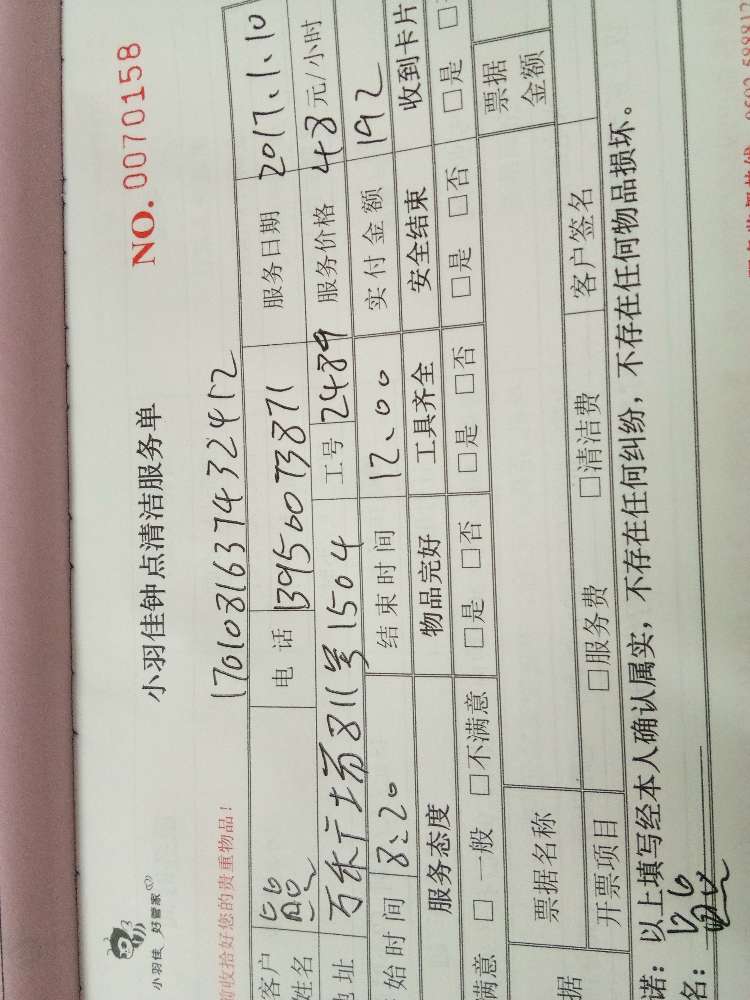 小羽佳 好管家
小羽佳钟点清洁服务单
NO. 0070158
前收拾好您的贵重物品!
17010816374 32412
客户姓名
电话 13950073871
服务日期 2017.1.10
地址 万禾广场811号1504
工号 2489
服务价格 48元/小时
始时间 8:20
结束时间 12.00
实付金额 192
服务态度 物品完好 工具齐全 安全结束 收到卡片
满意 □ 一般 □不满意 □是 □否 □是 □否 □是 □否 □是
据 票据名称 票据金额
开票项目 □服务费 □清洁费 客户签名
诺:以上填写经本人确认属实,不存在任何纠纷,不存在任何物品损坏。
名: